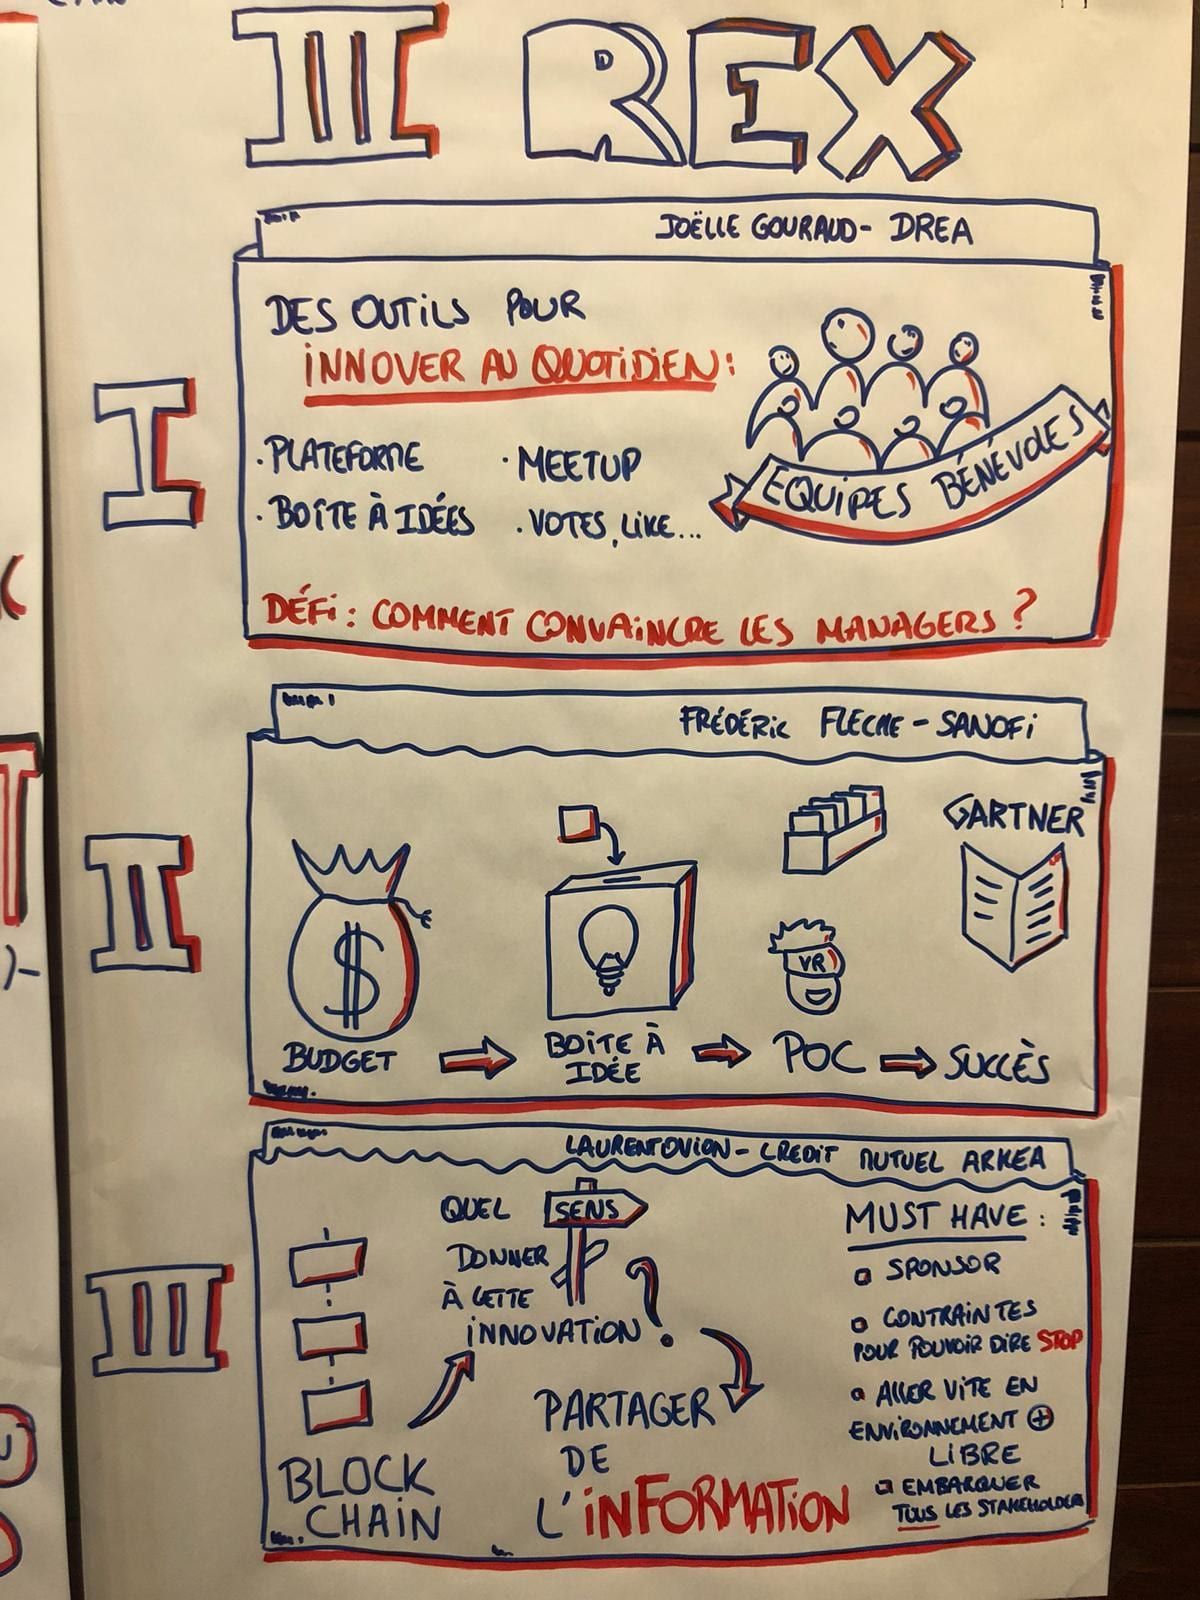 III REX
JOËLLE GOURAUD - DREA
I
DES OUTILS POUR
INNOVER AU QUOTIDIEN :
· PLATEFORME
· MEETUP
· BOÎTE À IDÉES
· VOTES, LIKE...
EQUIPES BÉNÉVOLES
DÉFI : COMMENT CONVAINCRE LES MANAGERS ?
FRÉDÉRIC FLECHE - SANOFI
II
GARTNER
$
VR
BUDGET
BOITE À
IDÉE
POC
SUCCÈS
LAURENT OVION - CREDIT MUTUEL ARKEA
III
QUEL SENS
DONNER
À CETTE
INNOVATION ?
BLOCK
CHAIN
PARTAGER
DE
L'INFORMATION
MUST HAVE :
SPONSOR
CONTRAINTES
POUR POUVOIR DIRE STOP
ALLER VITE EN
ENVIRONNEMENT +
LIBRE
EMBARQUER
TOUS LES STAKEHOLDERS